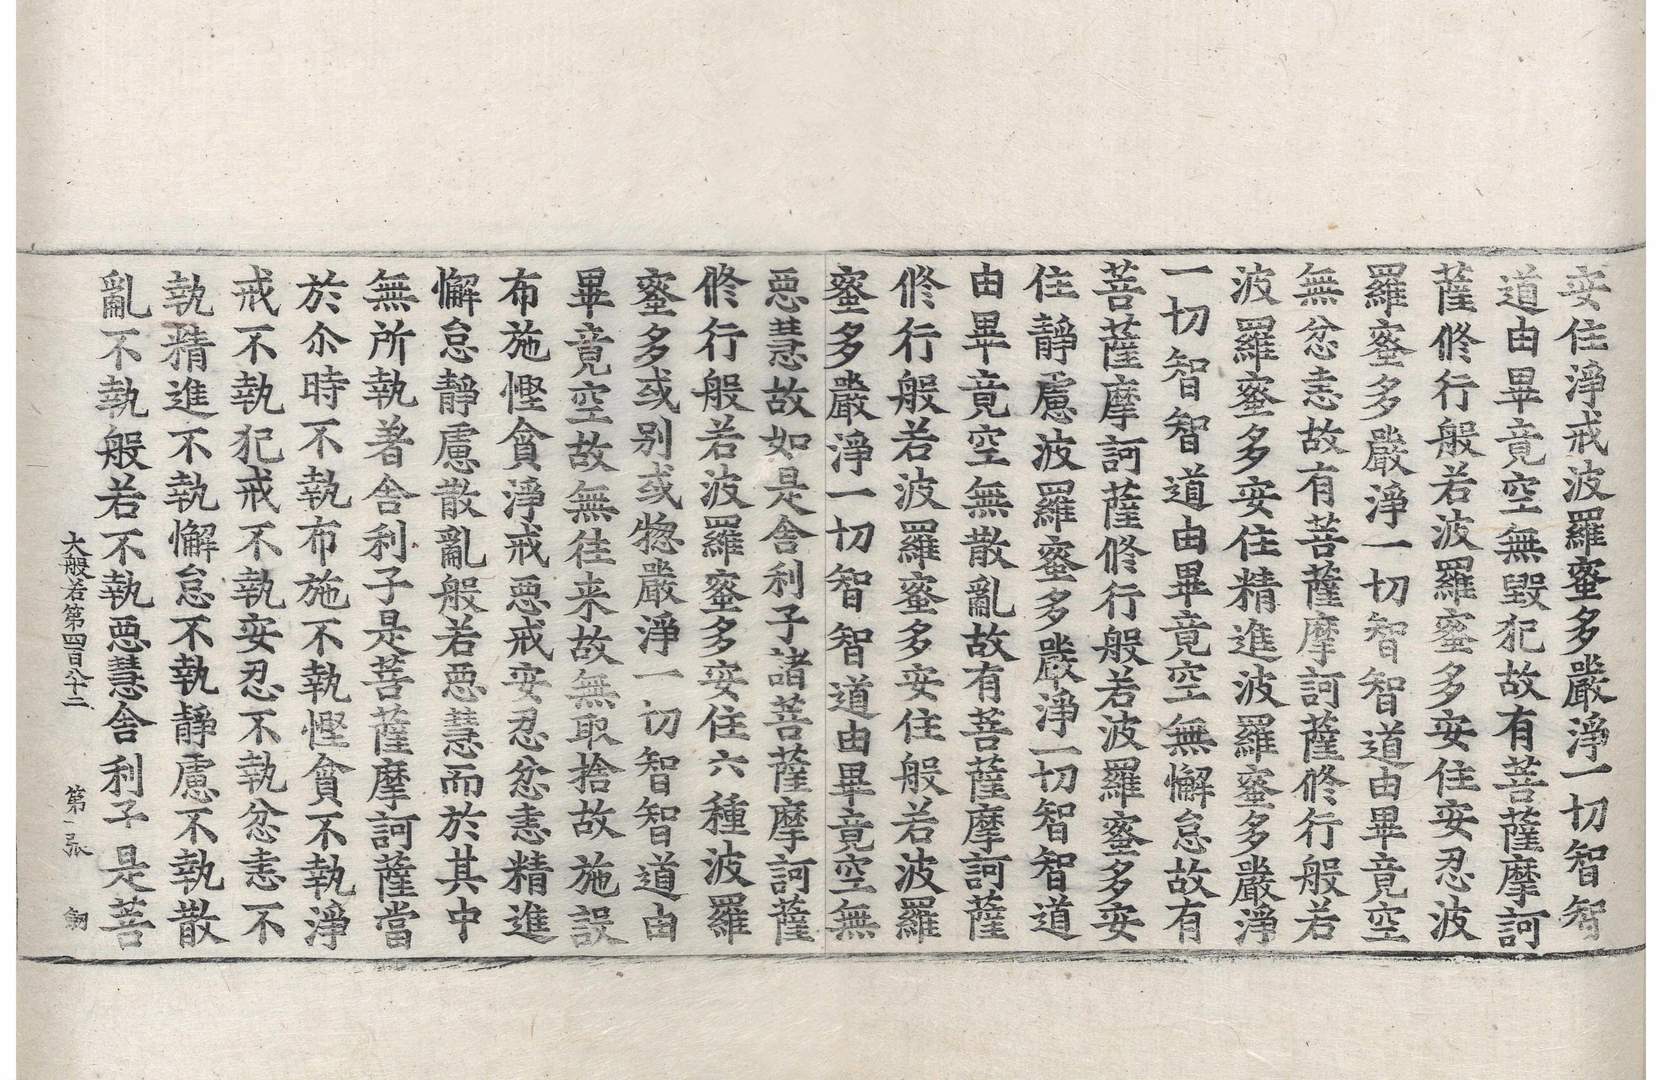 安住淨戒波羅蜜多嚴淨一切智智
道由畢竟空無毀犯故有菩薩摩訶
薩修行般若波羅蜜多安住安忍波
羅蜜多嚴淨一切智智道由畢竟空
無忿恚故有菩薩摩訶薩修行般若
波羅蜜多安住精進波羅蜜多嚴淨
一切智智道由畢竟空無懈怠故有
菩薩摩訶薩修行般若波羅蜜多安
住靜慮波羅蜜多嚴淨一切智智道
由畢竟空無散亂故有菩薩摩訶薩
修行般若波羅蜜多安住般若波羅
蜜多嚴淨一切智智道由畢竟空無
惡慧故如是舍利子諸菩薩摩訶薩
修行般若波羅蜜多安住六種波羅
蜜多或別或惣嚴淨一切智智道由
畢竟空故無往来故無取捨故施設
布施慳貪淨戒惡戒安忍忿恚精進
懈怠靜慮散亂般若惡慧而於其中
無所執著舍利子是菩薩摩訶薩當
於尒時不執布施不執慳貪不執淨
戒不執犯戒不執安忍不執忿恚不
執精進不執懈怠不執靜慮不執散
亂不執般若不執惡慧舍利子是菩
大般若第四百八十二 第一張